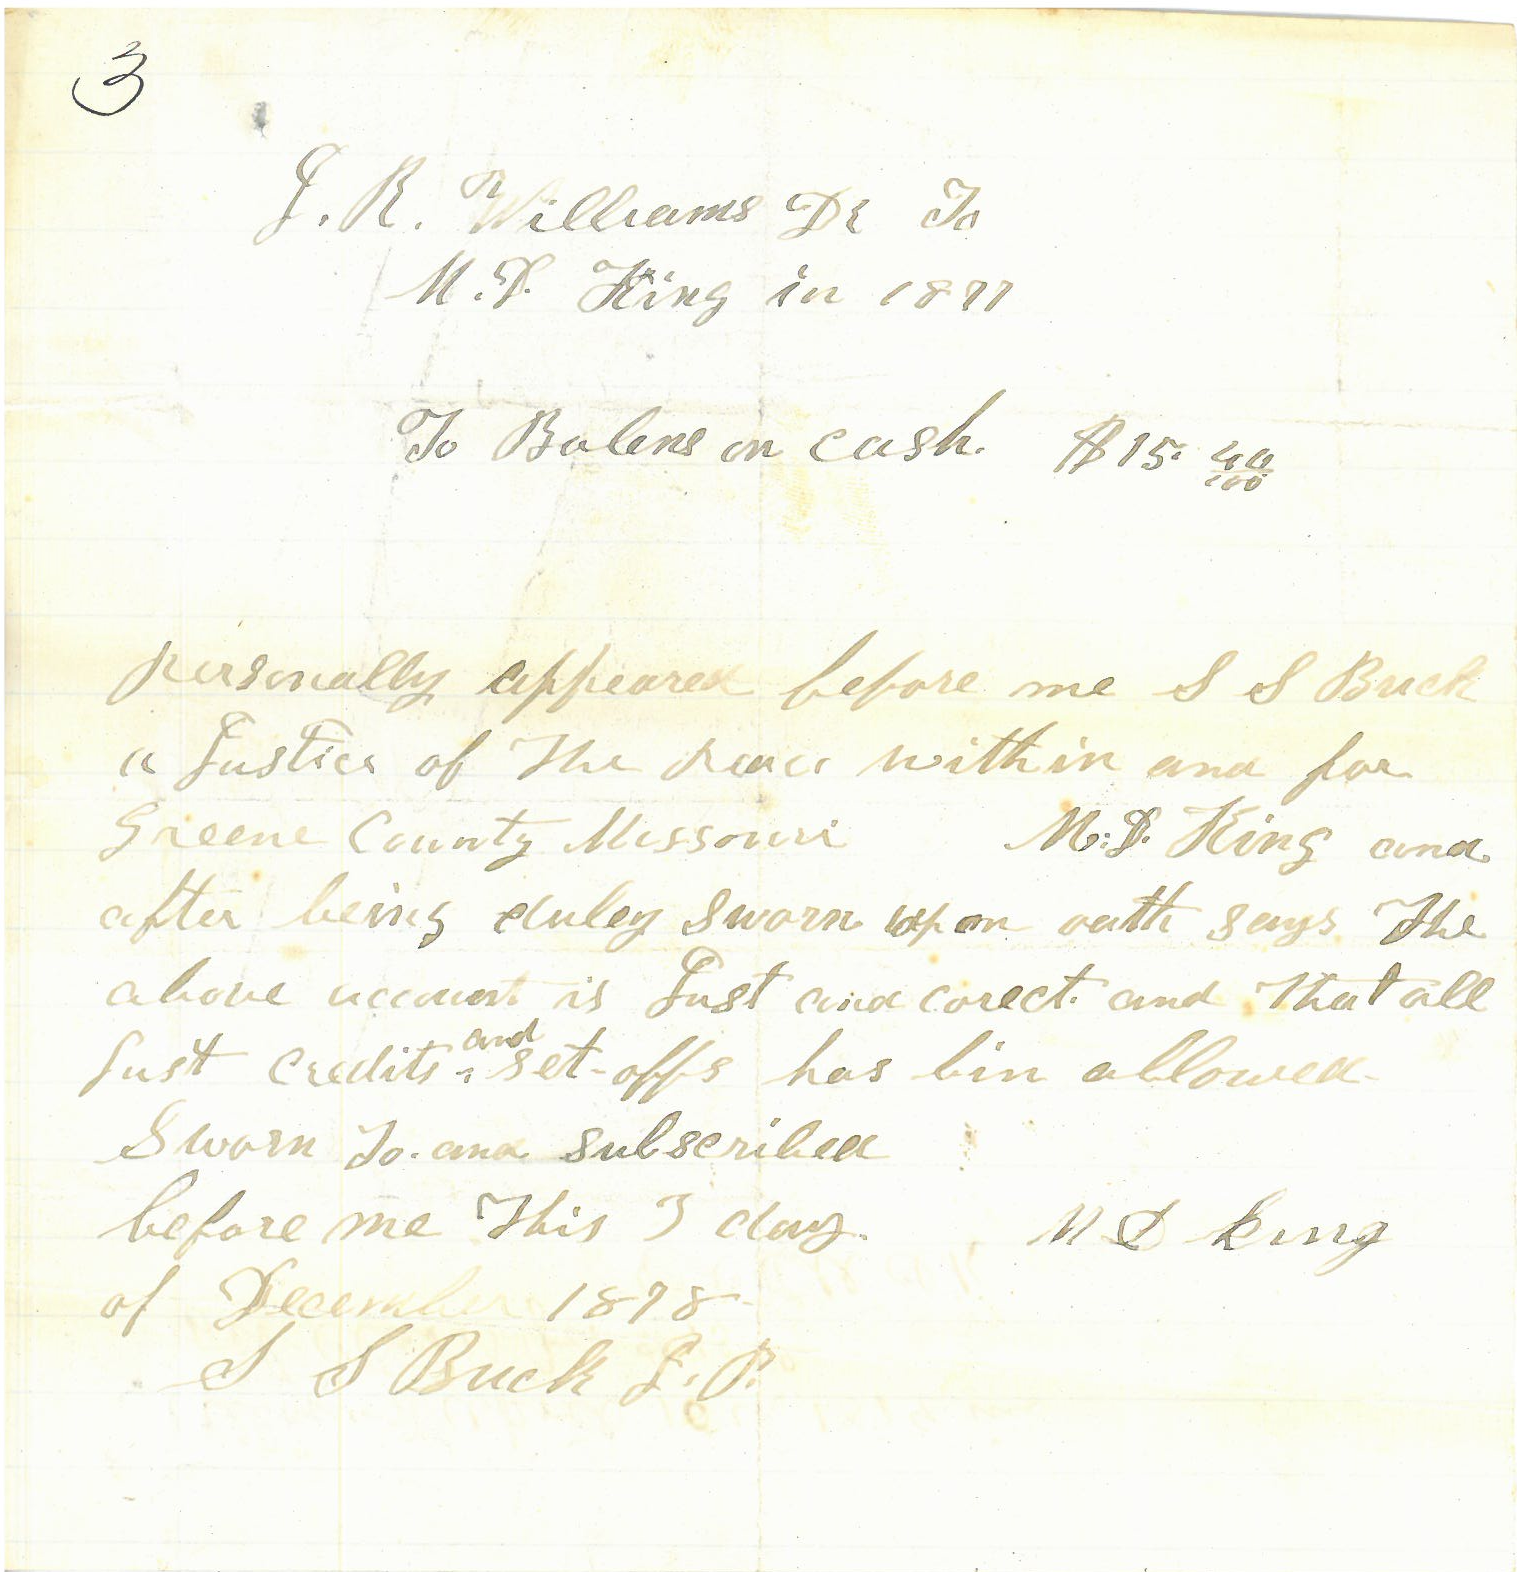 3
J. R. Williams Dr To
M. D. King in 1877
To Balens on cash. $15. 40/100
personally appeared before me S S Buck
a Justice of The peace within and for
Greene County Missouri M. D. King and
after being duley sworn upon oath says The
above account is Just and corect. and That all
Just credits and set-offs has bin allowed.
Sworn To. and subscribed
before me This 3 day. M D King
of December 1878
S S Buck J. P.